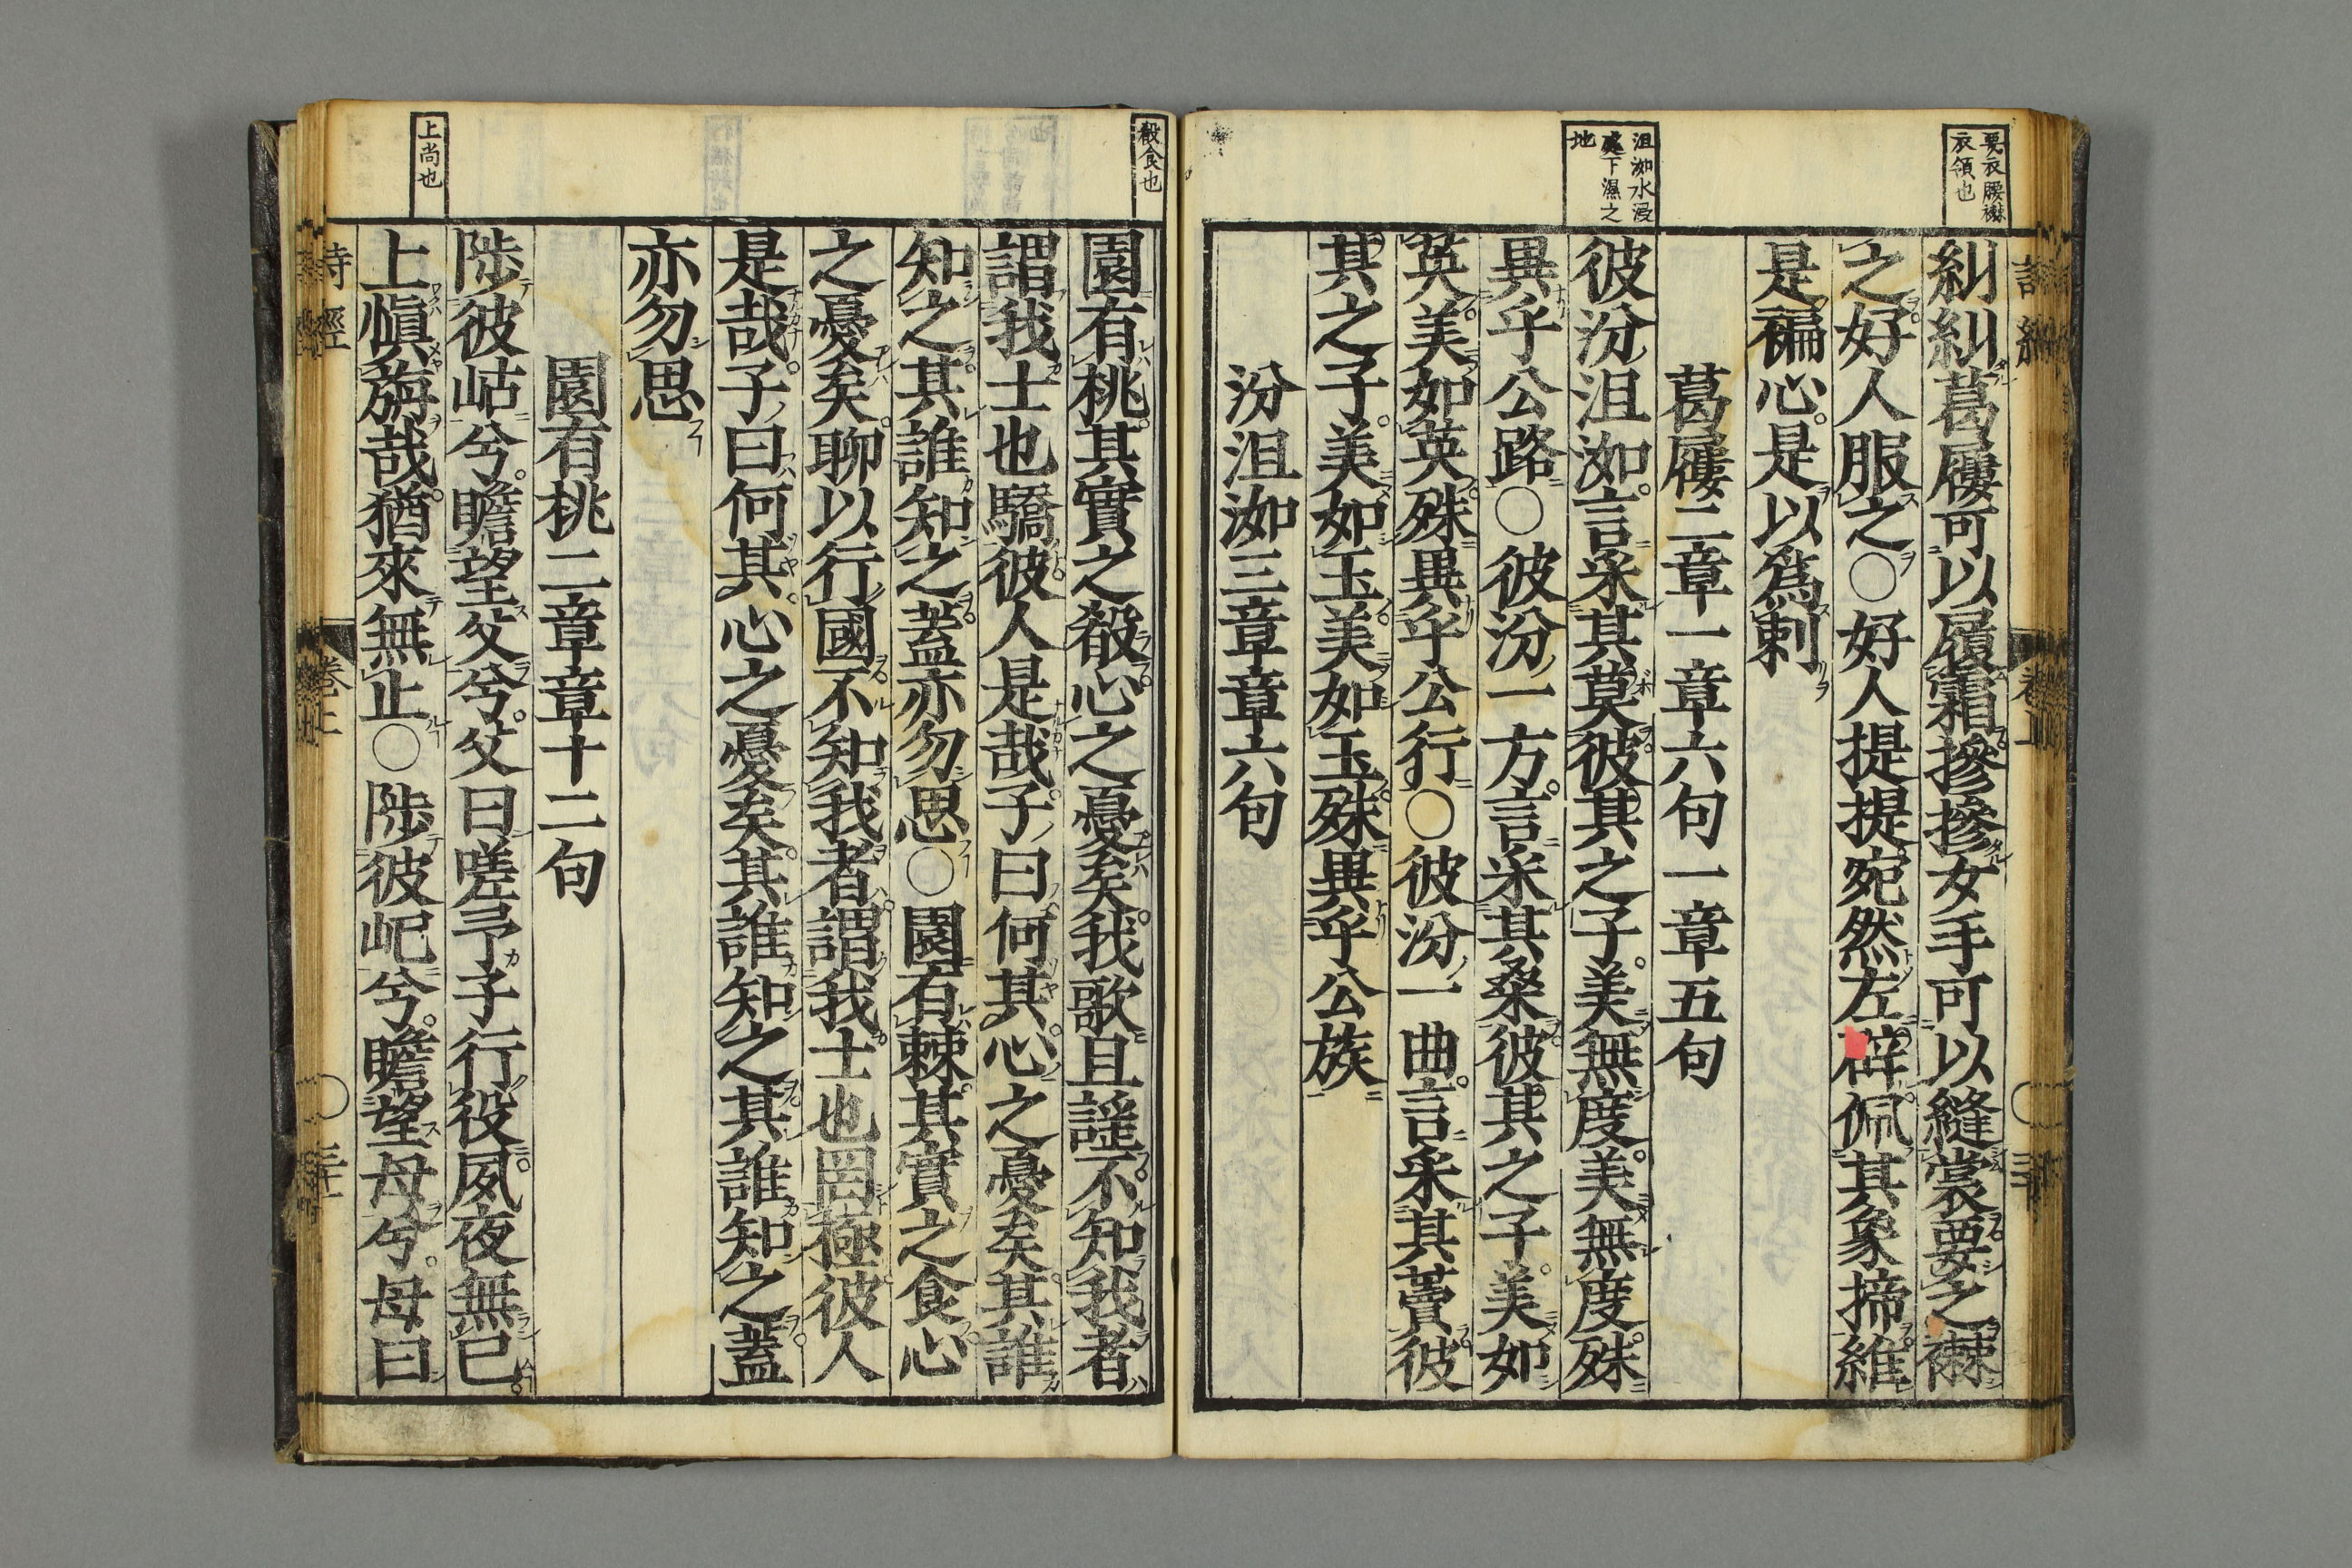 要衣腰襋
衣領也
糾糾葛屨可以履霜摻摻女手可以縫裳要之襋
之好人服之〇好人提提宛然左辟佩其象揥維
是褊心是以爲刺
葛屨二章一章六句一章五句
沮洳水浸
處下濕之
地
彼汾沮洳言采其莫彼其之子美無度美無度殊
異乎公路〇彼汾一方言采其桑彼其之子美如
英美如英殊異乎公行〇彼汾一曲言采其藚彼
其之子美如玉美如玉殊異乎公族
汾沮洳三章章六句
殽食也
園有桃其實之殽心之憂矣我歌且謠不知我者
謂我士也驕彼人是哉子曰何其心之憂矣其誰
知之其誰知之蓋亦勿思〇園有棘其實之食心
之憂矣聊以行國不知我者謂我士也罔極彼人
是哉子曰何其心之憂矣其誰知之其誰知之蓋
亦勿思
園有桃二章章十二句
陟彼岵兮瞻望父兮父曰嗟予子行役夙夜無已
上尚也
上愼旃哉猶來無止〇陟彼屺兮瞻望母兮母曰
詩經